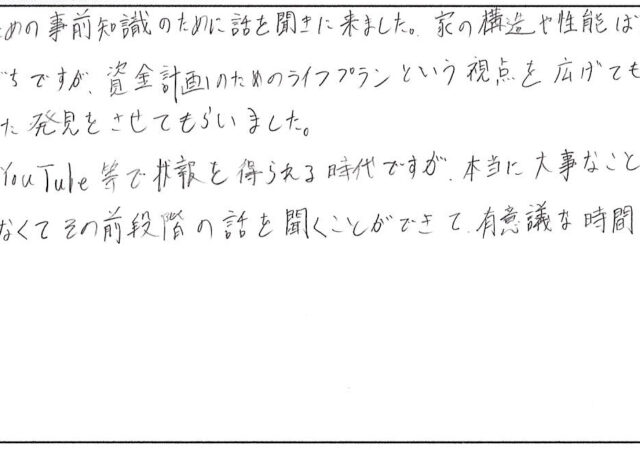 めの事前知識のために話を聞きに来ました。家の構造や性能ば
ちですが、資金計画のためのライフプランという視点を広げても
た発見をさせてもらいました。
YouTube等で状報を得られる時代ですが、本当に大事なこと
なくてその前段階の話を聞くことができて、有意議な時間